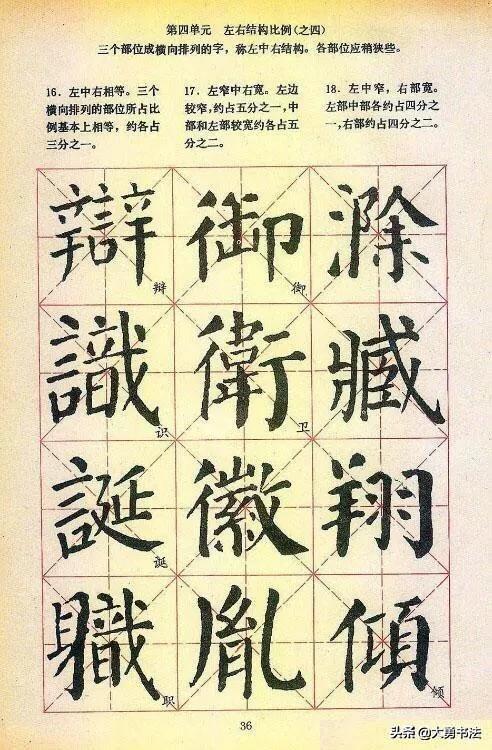 第四单元 左右结构比例(之四)
三个部位成横向排列的字，称左中右结构。各部位应稍狭些。
16. 左中右相等。三个
横向排列的部位所占比
例基本上相等，约各占
三分之一。
17. 左窄中右宽。左边
较窄，约占五分之一，中
部和左部较宽约各占五
分之二。
18. 左中稍，右部宽。
左部中部各约占四分之
一，右部约占四分之二。
辯 御 滁
辩 御
識 衛 臧
识 卫
誕 徽 翔
诞
軄 胤 傾
职 倾
36
头条 @大勇书法